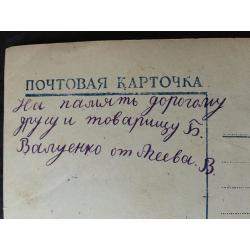 ПОЧТОВАЯ КАРТОЧКА
На память дорогому
другу и товарищу Б.
Валуенко от Агеева. В.